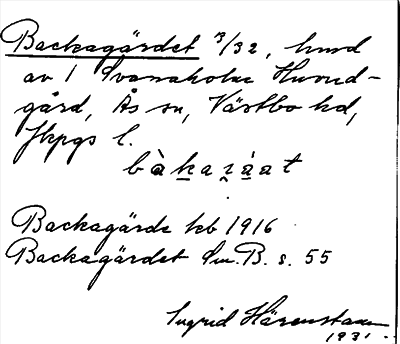 Backagärdet 3/32, hmd
av 1 Svanaholm Huvud-
gård, Ås sn, Västbo hd,
Jkpgs l.
bàkaɽáat
Backagärde kb 1916
Backagärdet Sm.B. s. 55
Ingrid Härenstam
1931